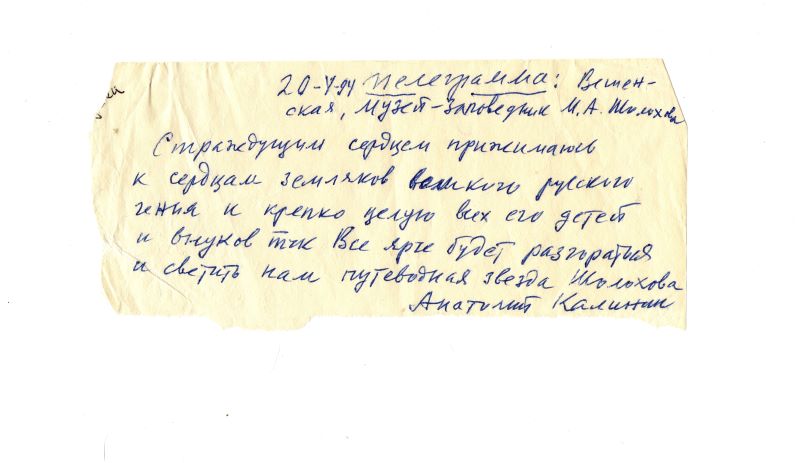 20-V-94 телеграмма: Вешен-
ская, музей-заповедник М.А. Шолохова
Страждущим сердцем прижимаюсь
к сердцам земляков великого русского
гения и крепко целую всех его детей
и внуков тчк Все ярче будет разгораться
и светить нам путеводная звезда Шолохова
Анатолий Калинин